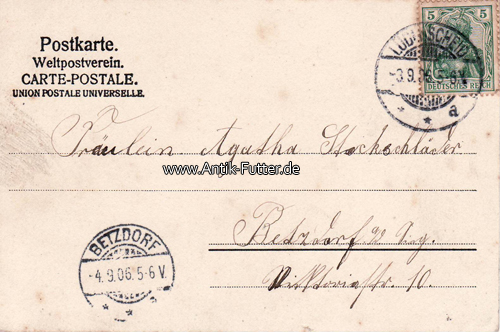 Postkarte.
Weltpostverein.
CARTE-POSTALE.
UNION POSTALE UNIVERSELLE.
5 5
DEUTSCHES REICH
LÜDENSCHEID
-3.9.06.5-6V.
* * a
Fräulein Agatha Hochschläder
www.Antik-Futter.de
Betzdorf a/ Sieg.
Viktoriastr. 10.
BETZDORF
-4.9.06.5-6V.
* * a